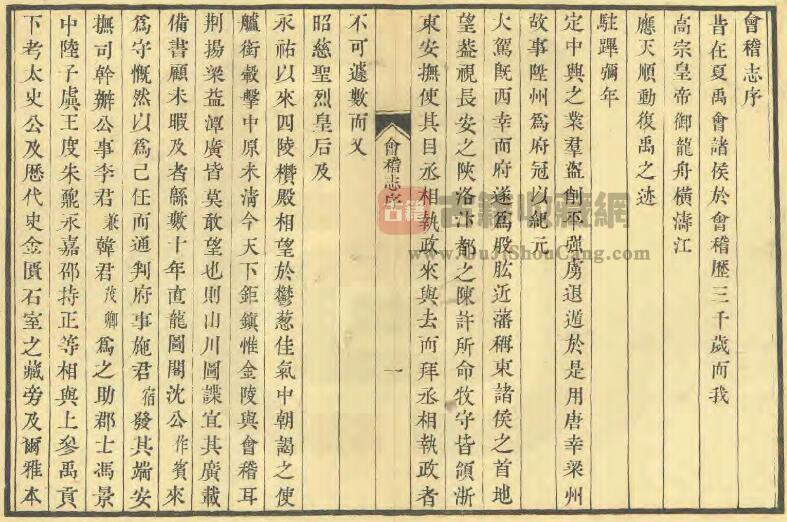 會稽志序
昔在夏禹會諸侯於會稽歷三千歲而我
高宗皇帝御龍舟橫濤江
應天順動復禹之迹
駐蹕彌年
定中興之業羣盜削平強虜退遁於是用唐幸梁州
故事陞州爲府冠以紀元
大駕旣西幸而府遂爲股肱近藩稱東諸侯之首地
望葢視長安之陝洛汴都之陳許所命牧守皆領浙
東安撫使其自丞相執政來與去而拜丞相執政者
會稽志序
一
不可遽數而又
昭慈聖烈皇后及
永祐以來四陵欑殿相望於鬱葱佳氣中朝謁之使
艫銜轂擊中原未清今天下鉅鎮惟金陵與會稽耳
荆揚梁益潭廣皆莫敢望也則山川圖諜宜其廣載
備書顧未暇及者緜數十年直龍圖閣沈公作賓來
爲守慨然以爲己任而通判府事施君宿發其端安
撫司幹辦公事李君兼韓君茂卿爲之助郡士馮景
中陸子虡王度朱鼐永嘉邵持正等相與上參禹貢
下考太史公及歷代史金匱石室之藏旁及爾雅本
古籍
古籍收藏網
www.GuJiShouCang.com